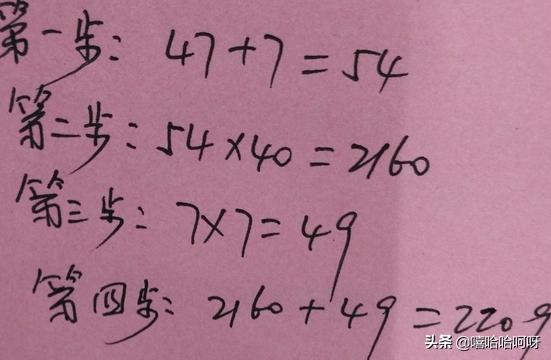 第一步: 47+7=54
第二步: 54×40=2160
第三步: 7×7=49
第四步: 2160+49=2209
头条 @嘻哈哈呵呀